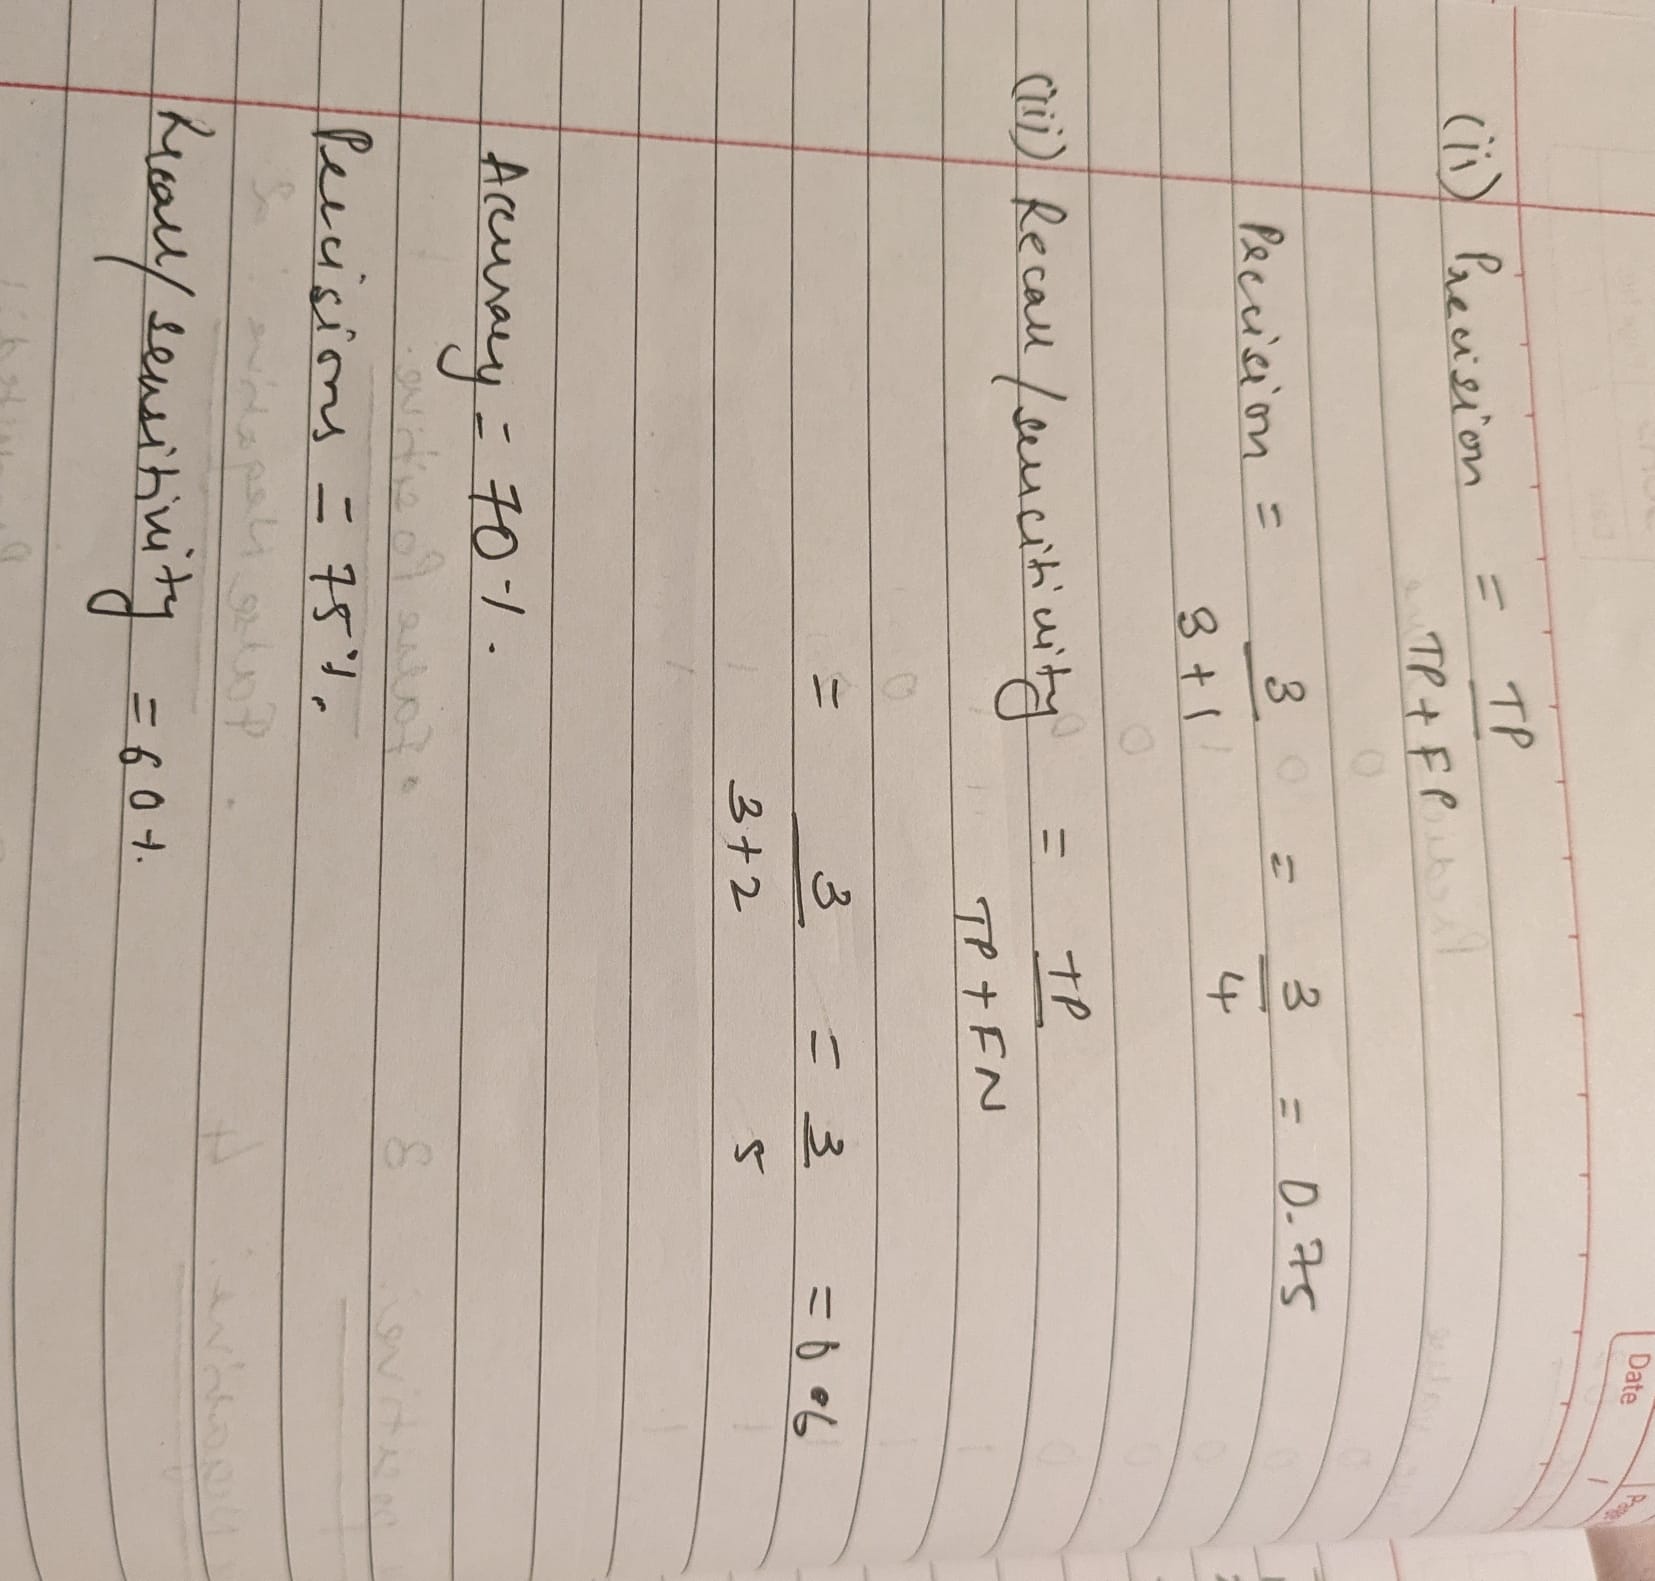 Date
Page
(ii) Precision = TP
TP + FP
Precision = 3 = 3 = 0.75
3 + 1 4
(iii) Recall / sencitivity = TP
TP + FN
= 3 = 3 = 0.6
3+2 5
Accuracy = 70%.
Precisions = 75%.
Recall/ sensitivity = 60%.